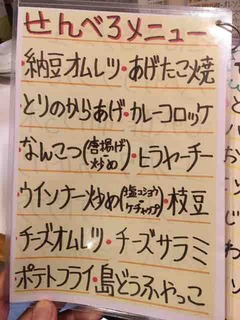 せんべろメニュー
・納豆オムレツ・あげたこ焼
・とりのからあげ・カレーコロッケ
・なんこつ(唐揚げ 炒め)・ヒラヤーチー
・ウインナー炒め(塩コショウ ケチャップ)・枝豆
・チーズオムレツ・チーズサラミ
・ポテトフライ・島どうふやっこ